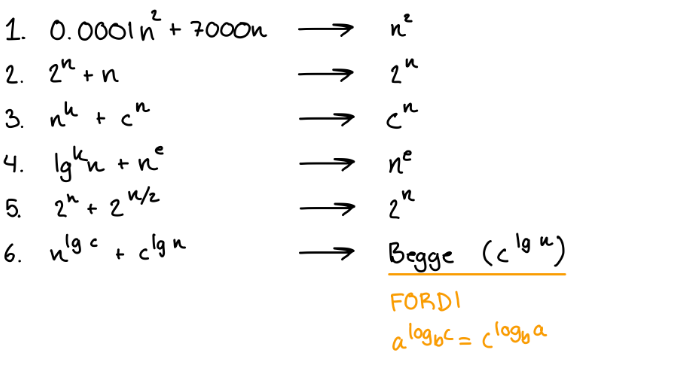 1. 0.0001n² + 7000n → n²
2. 2ⁿ + n → 2ⁿ
3. nᵏ + cⁿ → cⁿ
4. lgᵏn + nᵉ → nᵉ
5. 2ⁿ + 2^(n/2) → 2ⁿ
6. n^(lg c) + c^(lg n) → Begge (c^(lg n))
FORDI
a^(log_b c) = c^(log_b a)